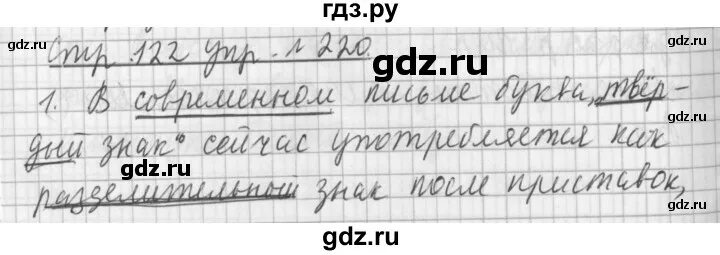 гдз.ру
Стр. 122 упр. № 220.
1. В современном письме буква „твёр-
дый знак“ сейчас употребляется как
разделительный знак после приставок,
gdz.ru
gdz.ru
gdz.ru
gdz.ru
gdz.ru